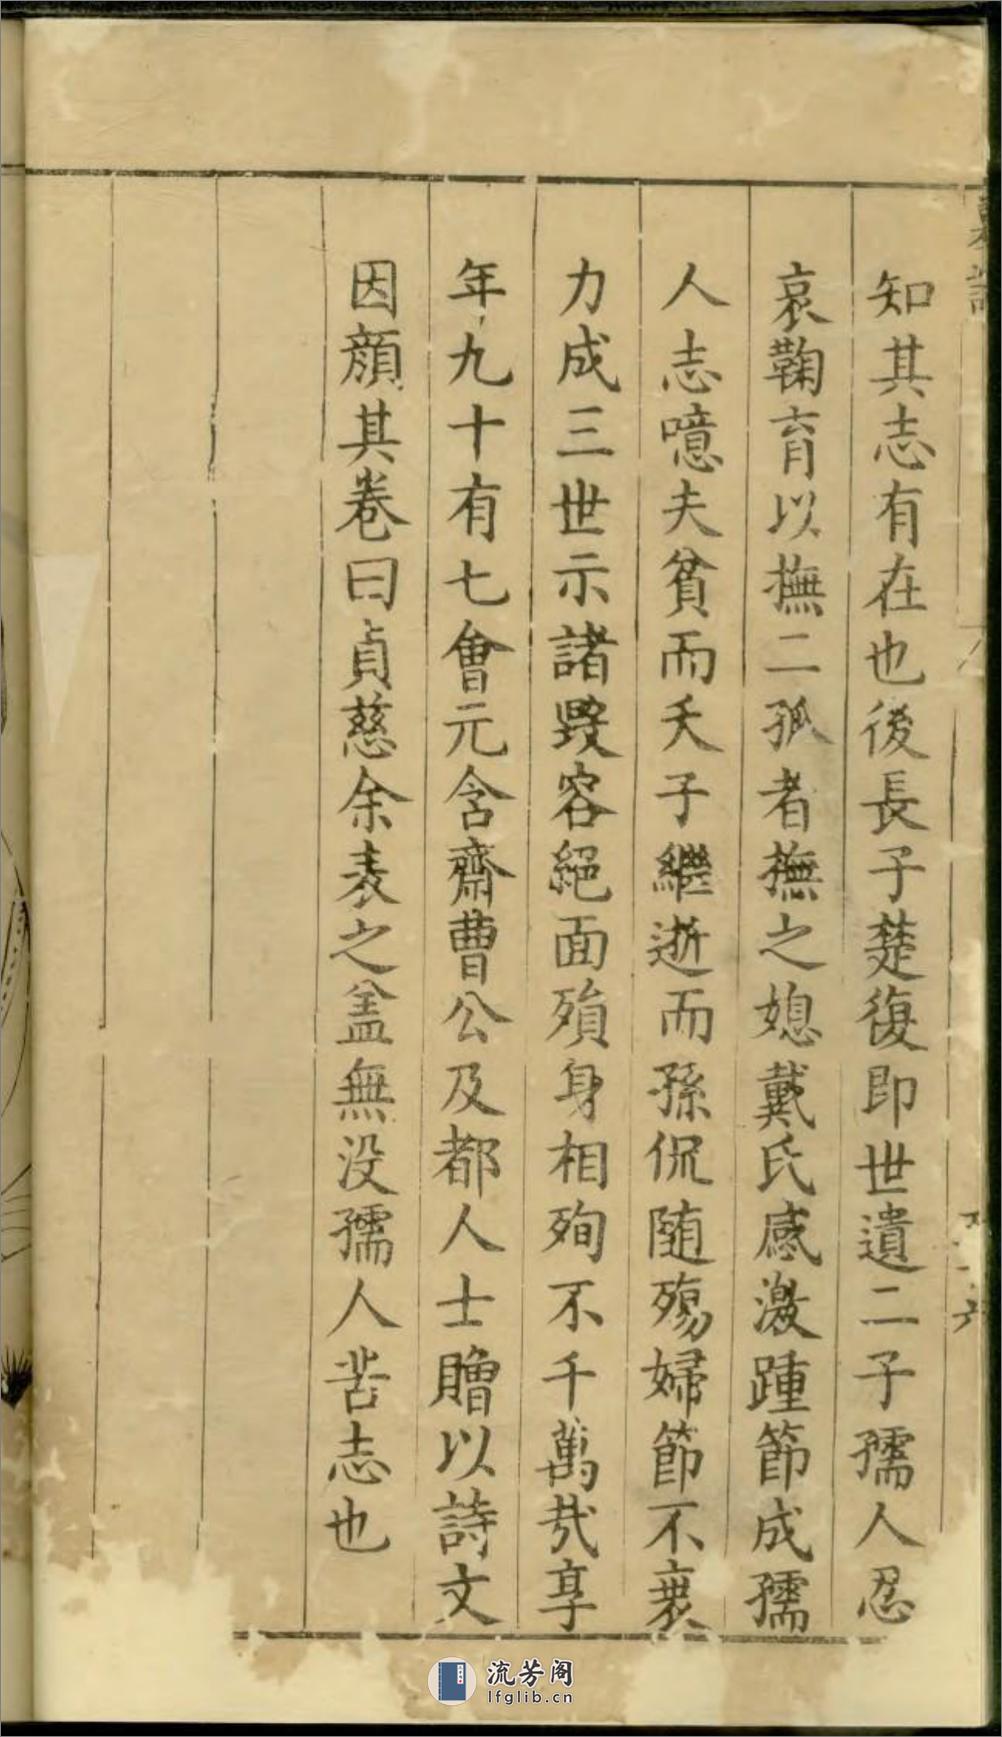 知其志有在也後長子楚復即世遺二子孺人忍
哀鞠育以撫二孤者撫之媳戴氏感激踵節成孺
人志噫夫貧而夭子繼逝而孫侃随殇婦節不衰
力成三世示諸毀容絕面殞身相殉不千萬㢤享
年九十有七會元含齋曹公及都人士贈以詩文
因顏其卷曰貞慈余表之盖無没孺人苦志也
流芳阁
lfglib.cn